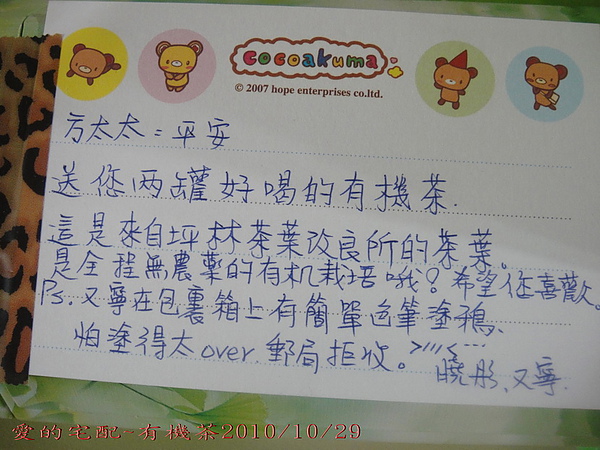 cocoakuma
© 2007 hope enterprises co.ltd.
方太太：平安
送您両罐好喝的有機茶.
這是來自坪林茶葉改良所的茶葉。
是全程無農藥的有机栽培哦！希望您喜歡。
Ps. 又寧在包裹箱上有簡單色筆塗鴉、
怕塗得太over.郵局拒收。>///<…
曉彤、又寧.
愛的宅配~有機茶2010/10/29